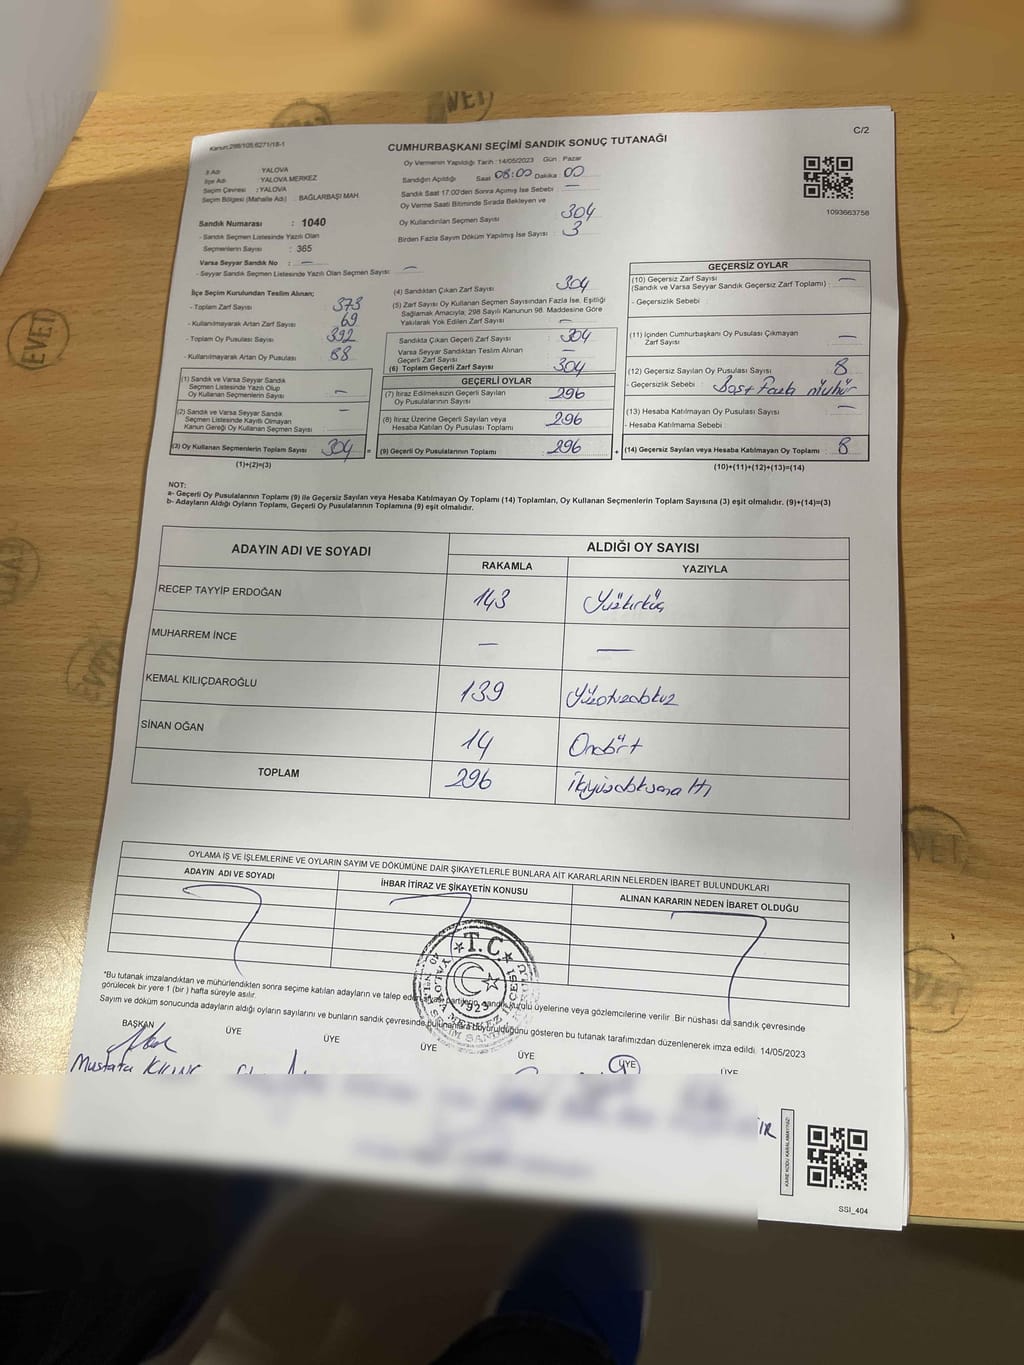 C/2
Kanun:298/105,6271/18-1
CUMHURBAŞKANI SEÇİMİ SANDIK SONUÇ TUTANAĞI
İl Adı : YALOVA
İlçe Adı : YALOVA MERKEZ
Seçim Çevresi : YALOVA
Seçim Bölgesi (Mahalle Adı) : BAĞLARBAŞI MAH.
Oy Vermenin Yapıldığı Tarih : 14/05/2023 Gün : Pazar
Sandığın Açıldığı Saat 08:00 Dakika 00
Sandık Saat 17:00'den Sonra Açımış İse Sebebi —
Oy Verme Saati Bitiminde Sırada Bekleyen ve
Oy Kullandırılan Seçmen Sayısı : 304
Birden Fazla Sayım Döküm Yapılmış İse Sayısı : 3
1093663758
Sandık Numarası : 1040
- Sandık Seçmen Listesinde Yazılı Olan
Seçmenlerin Sayısı : 365
Varsa Seyyar Sandık No : —
- Seyyar Sandık Seçmen Listesinde Yazılı Olan Seçmen Sayısı : —
İlçe Seçim Kurulundan Teslim Alınan;
- Toplam Zarf Sayısı : 373
- Kullanılmayarak Artan Zarf Sayısı : 69
- Toplam Oy Pusulası Sayısı : 392
- Kullanılmayarak Artan Oy Pusulası : 88
(1) Sandık ve Varsa Seyyar Sandık
Seçmen Listesinde Yazılı Olup
Oy Kullanan Seçmenlerin Sayısı : —
(2) Sandık ve Varsa Seyyar Sandık
Seçmen Listesinde Kayıtlı Olmayan
Kanun Gereği Oy Kullanan Seçmen Sayısı : —
(3) Oy Kullanan Seçmenlerin Toplam Sayısı : 304
(1)+(2)=(3)
(4) Sandıktan Çıkan Zarf Sayısı : 304
(5) Zarf Sayısı Oy Kullanan Seçmen Sayısından Fazla İse, Eşitliği
Sağlamak Amacıyla; 298 Sayılı Kanunun 98. Maddesine Göre
Yakılarak Yok Edilen Zarf Sayısı : —
Sandıkta Çıkan Geçerli Zarf Sayısı : 304
Varsa Seyyar Sandıktan Teslim Alınan
Geçerli Zarf Sayısı : —
(6) Toplam Geçerli Zarf Sayısı : 304
GEÇERLİ OYLAR
(7) İtiraz Edilmeksizin Geçerli Sayılan
Oy Pusulalarının Sayısı : 296
(8) İtiraz Üzerine Geçerli Sayılan veya
Hesaba Katılan Oy Pusulası Toplamı : 296
= (9) Geçerli Oy Pusulalarının Toplamı : 296 +
GEÇERSİZ OYLAR
(10) Geçersiz Zarf Sayısı : —
(Sandık ve Varsa Seyyar Sandık Geçersiz Zarf Toplamı)
- Geçersizlik Sebebi :
(11) İçinden Cumhurbaşkanı Oy Pusulası Çıkmayan
Zarf Sayısı : —
(12) Geçersiz Sayılan Oy Pusulası Sayısı : 8
- Geçersizlik Sebebi : Boş + Fazla mühür
(13) Hesaba Katılmayan Oy Pusulası Sayısı : —
- Hesaba Katılmama Sebebi :
(14) Geçersiz Sayılan veya Hesaba Katılmayan Oy Toplamı : 8
(10)+(11)+(12)+(13)=(14)
NOT:
a- Geçerli Oy Pusulalarının Toplamı (9) ile Geçersiz Sayılan veya Hesaba Katılmayan Oy Toplamı (14) Toplamları, Oy Kullanan Seçmenlerin Toplam Sayısına (3) eşit olmalıdır. (9)+(14)=(3)
b- Adayların Aldığı Oyların Toplamı, Geçerli Oy Pusulalarının Toplamına (9) eşit olmalıdır.
ADAYIN ADI VE SOYADI ALDIĞI OY SAYISI
RAKAMLA YAZIYLA
RECEP TAYYİP ERDOĞAN 143 Yüzkırküç
MUHARREM İNCE — —
KEMAL KILIÇDAROĞLU 139 Yüzotuzdokuz
SİNAN OĞAN 14 Ondört
TOPLAM 296 İkiyüzdoksanaltı
OYLAMA İŞ VE İŞLEMLERİNE VE OYLARIN SAYIM VE DÖKÜMÜNE DAİR ŞİKAYETLERLE BUNLARA AİT KARARLARIN NELERDEN İBARET BULUNDUKLARI
ADAYIN ADI VE SOYADI İHBAR İTİRAZ VE ŞİKAYETİN KONUSU ALINAN KARARIN NEDEN İBARET OLDUĞU
T.C.
1923
*Bu tutanak imzalandıktan ve mühürlendikten sonra seçime katılan adayların ve talep eden siyasi partilerin, sandık kurulu üyelerine veya gözlemcilerine verilir. Bir nüshası da sandık çevresinde
görülecek bir yere 1 (bir) hafta süreyle asılır.
Sayım ve döküm sonucunda adayların aldığı oyların sayılarını ve bunların sandık çevresinde bulunanlara duyurulduğunu gösteren bu tutanak tarafımızdan düzenlenerek imza edildi. 14/05/2023
BAŞKAN ÜYE ÜYE ÜYE ÜYE ÜYE ÜYE
Mustafa KILINÇ
KARE KODU KARALAMAYINIZ!
SSI_404
EVET
EVET
EVET
EVET